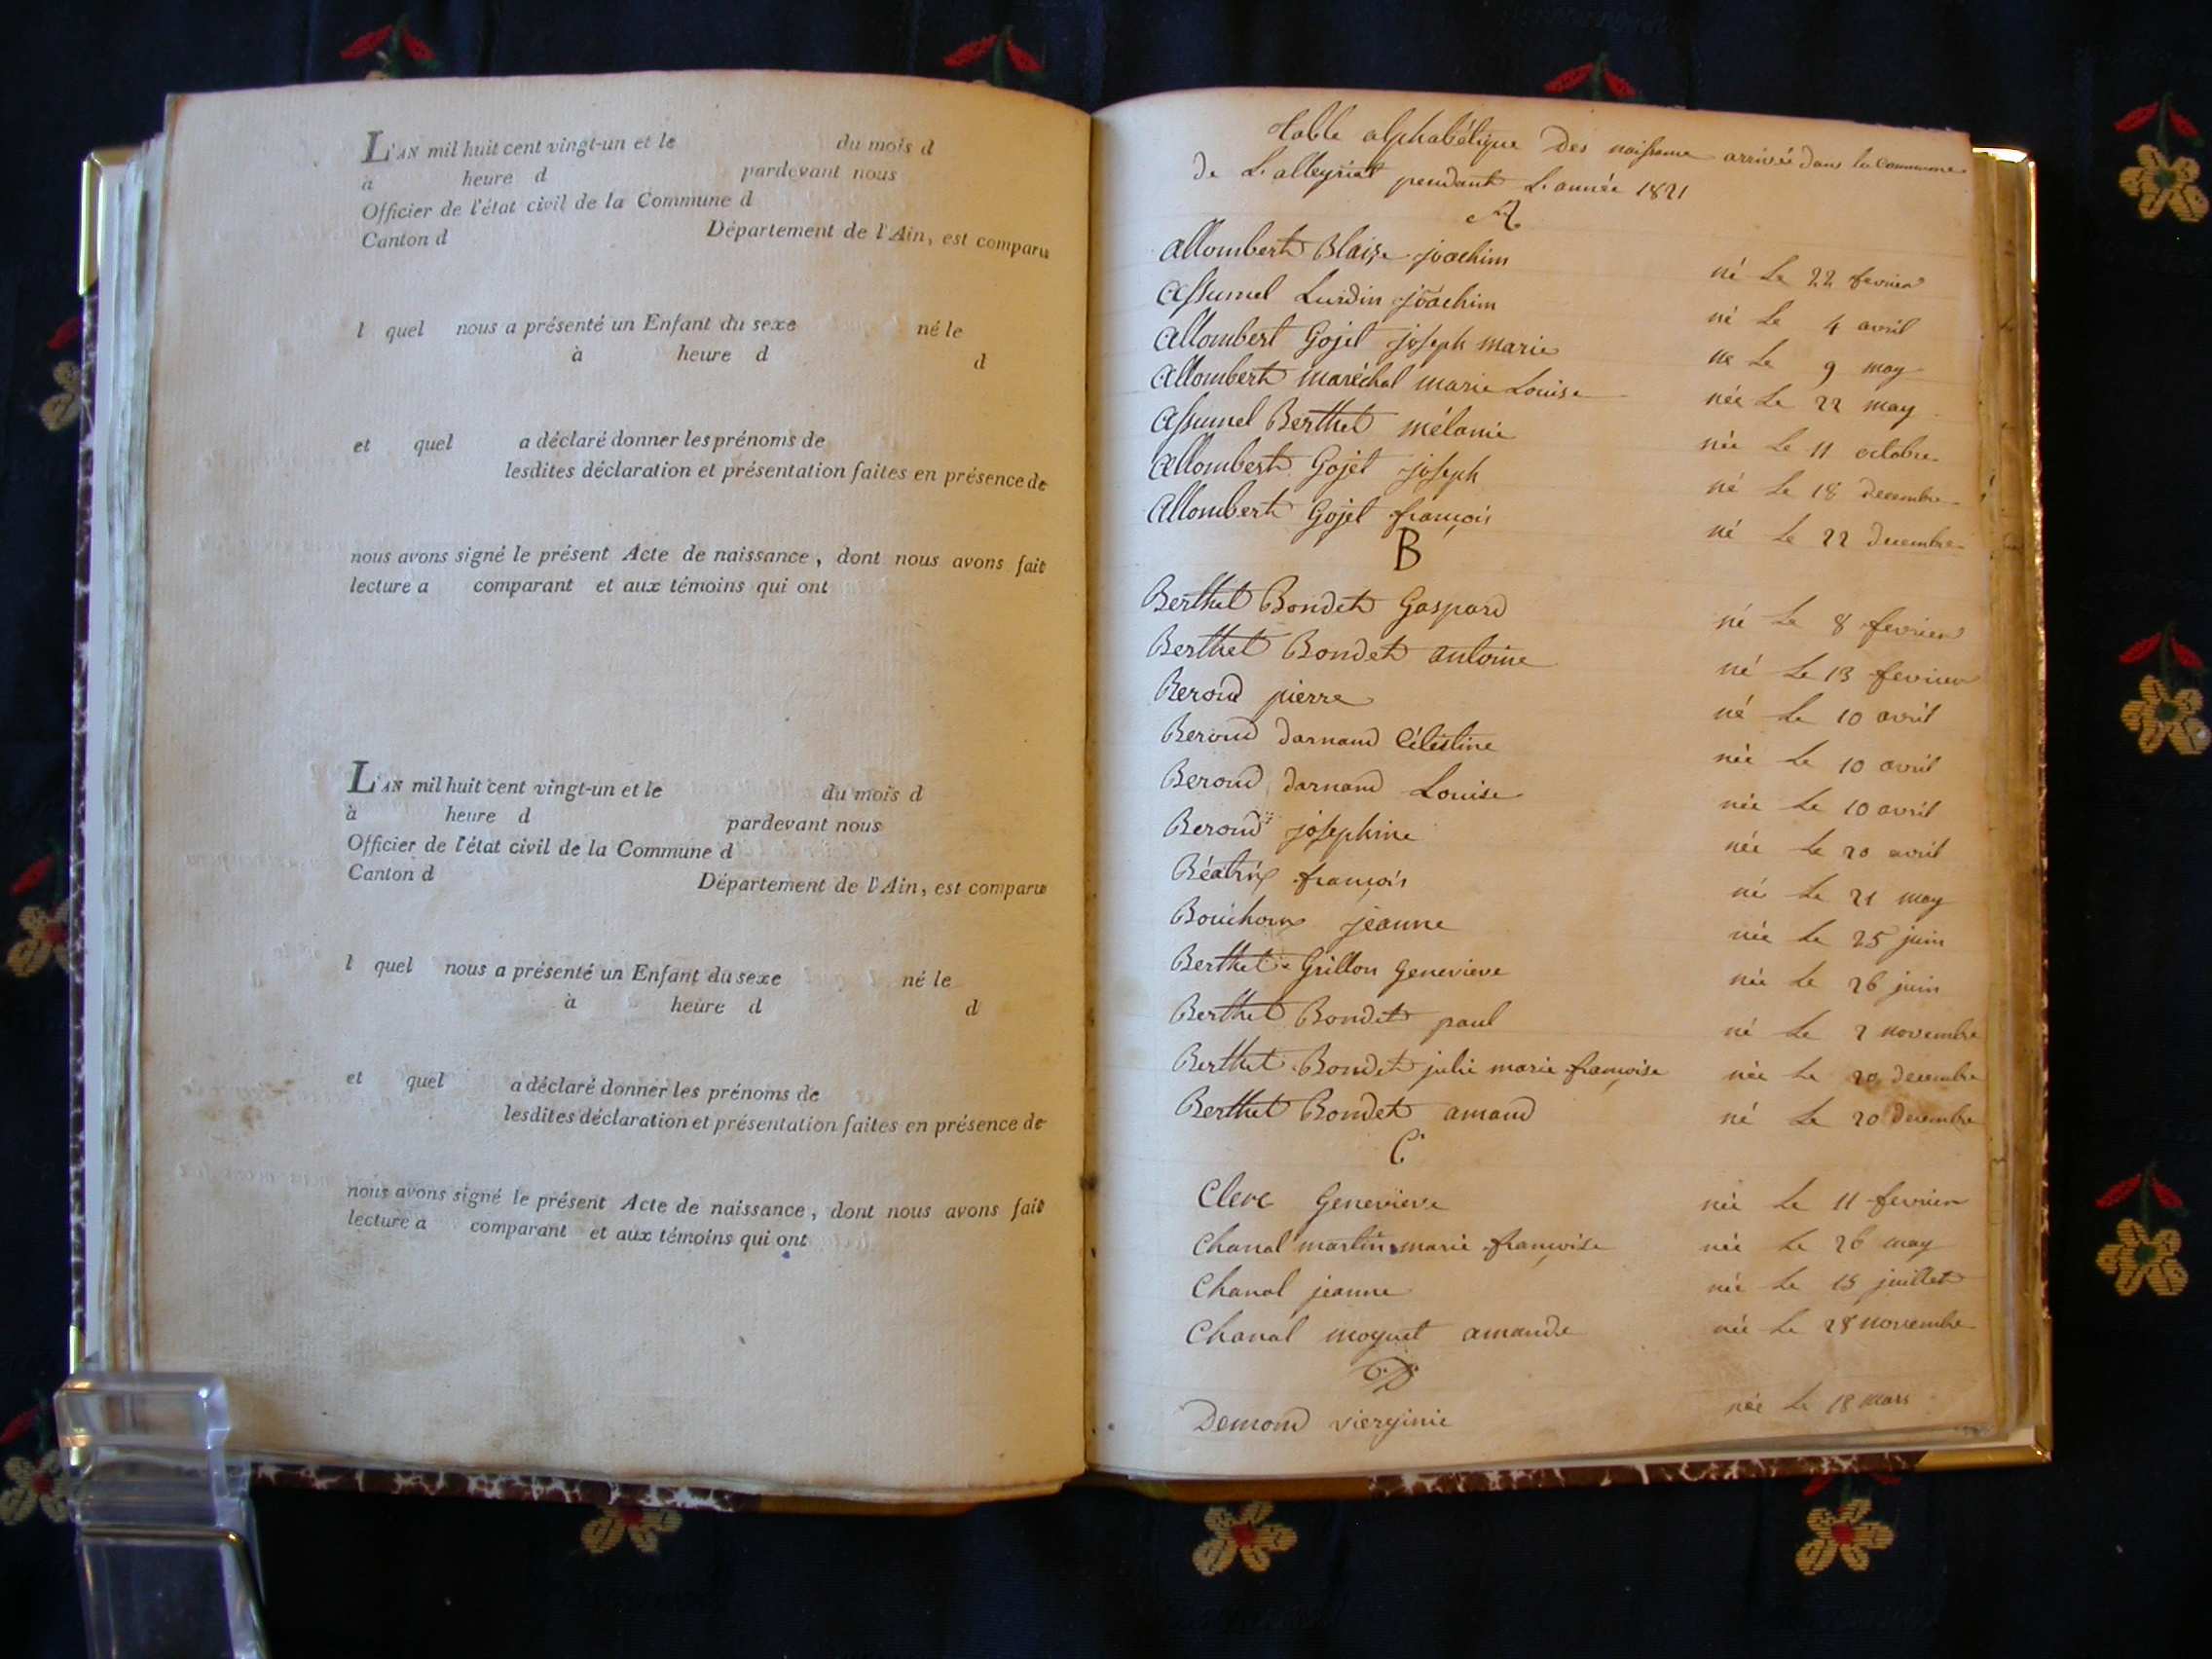 L'AN mil huit cent vingt-un et le du mois d
à heure d pardevant nous
Officier de l'état civil de la Commune d
Canton d Département de l'Ain, est comparu
l quel nous a présenté un Enfant du sexe né le
à heure d d
et quel a déclaré donner les prénoms de
lesdites déclaration et présentation faites en présence de
nous avons signé le présent Acte de naissance, dont nous avons fait
lecture a comparant et aux témoins qui ont
L'AN mil huit cent vingt-un et le du mois d
à heure d pardevant nous
Officier de l'état civil de la Commune d
Canton d Département de l'Ain, est comparu
l quel nous a présenté un Enfant du sexe né le
à heure d d
et quel a déclaré donner les prénoms de
lesdites déclaration et présentation faites en présence de
nous avons signé le présent Acte de naissance, dont nous avons fait
lecture a comparant et aux témoins qui ont
table alphabétique des naissance arrivée dans la commune
de Lalleyriat pendant L'année 1821
A
allombert Blaise joachim né Le 22 fevrier
assumel Lurdin joachim né Le 4 avril
allombert Gojet joseph marie né Le 9 may
allombert maréchal marie Louise née Le 22 may
assumel Berthet mélanie née Le 11 octobre
allombert Gojet joseph né Le 18 decembre
allombert Gojet françois né Le 22 decembre
B
Berthet Bondet Gaspard né Le 8 fevrier
Berthet Bondet antoine né Le 13 fevrier
Beroud pierre né Le 10 avril
Beroud darnaud Célestine née Le 10 avril
Beroud darnaud Louise née Le 10 avril
Beroud josephine née Le 20 avril
Béatrix françois né Le 21 may
Bouchoux jeanne née Le 25 juin
Berthet Grillon Genevieve née Le 26 juin
Berthet Bondet paul né Le 2 novembre
Berthet Bondet julie marie françoise née Le 20 decembre
Berthet Bondet amand né Le 20 decembre
C
Clerc Genevieve née Le 11 fevrier
Chanal martin marie françoise née Le 26 may
Chanal jeanne née Le 15 juillet
Chanal moquet amande née Le 28 novembre
D
Demond vierginie née Le 18 mars